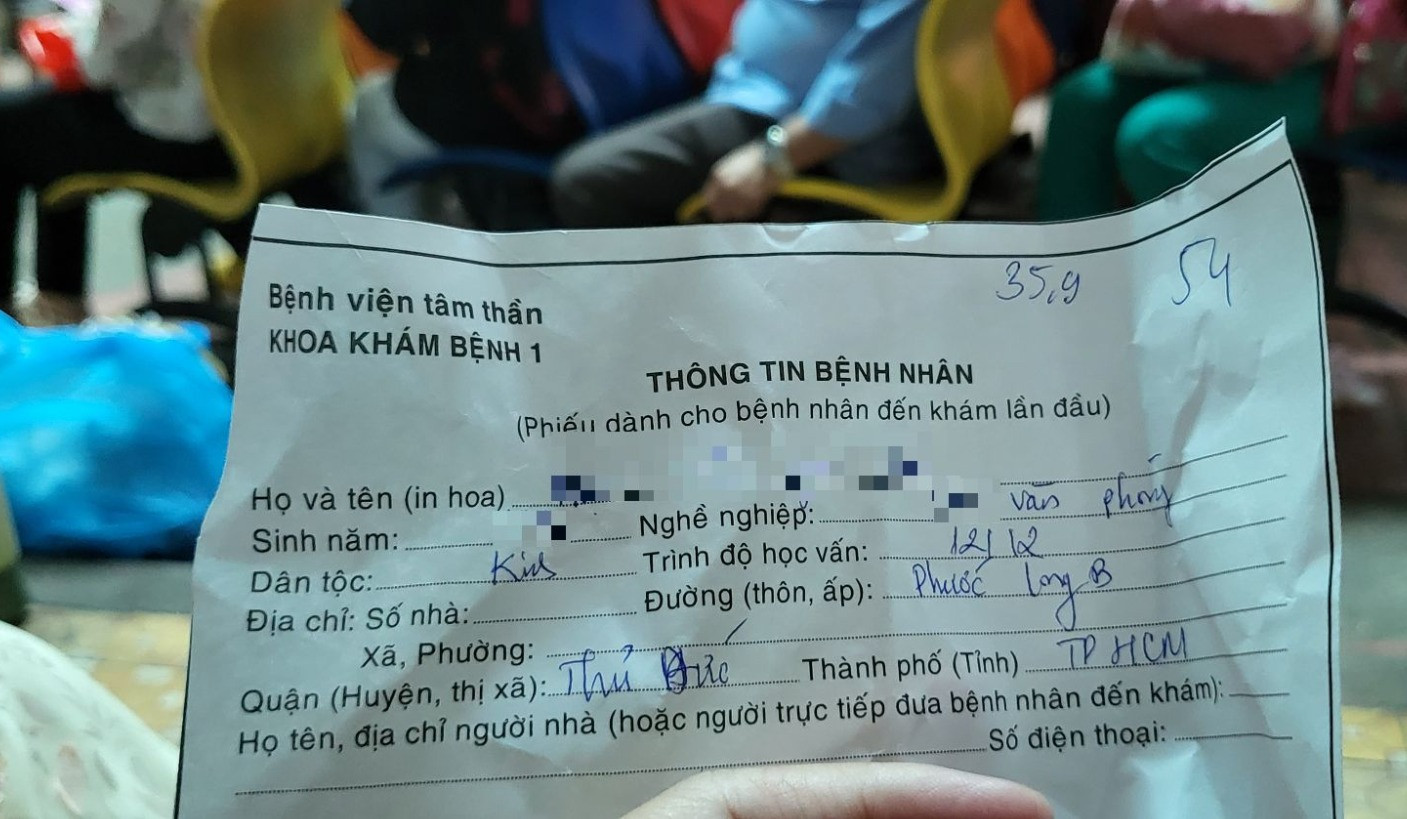 35,9 54
Bệnh viện tâm thần
KHOA KHÁM BỆNH 1
THÔNG TIN BỆNH NHÂN
(Phiếu dành cho bệnh nhân đến khám lần đầu)
Họ và tên (in hoa)
Sinh năm: Nghề nghiệp: văn phòng
Dân tộc: Kinh Trình độ học vấn: 12/12
Địa chỉ: Số nhà: Đường (thôn, ấp): Phước Long B
Xã, Phường:
Quận (Huyện, thị xã): Thủ Đức Thành phố (Tỉnh) TP HCM
Họ tên, địa chỉ người nhà (hoặc người trực tiếp đưa bệnh nhân đến khám):
Số điện thoại: